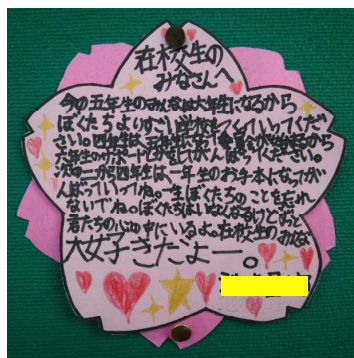 在校生の
みなさんへ
今の五年生のみんなは六年生になるから
ぼくたちよりすごい学校をつくっていってくだ
さい。四年生は、五年生になって委員会が始まるから
六年生のサポートとかをしてがんばってください。
二年生から四年生は一年生のお手本になってが
んばっていってね。一生ぼくたちのことを忘れ
ないでね。ぼくたちはいなくなるけどずっと
君たちの心の中にいるよ。在校生のみんな
大好きだよー。